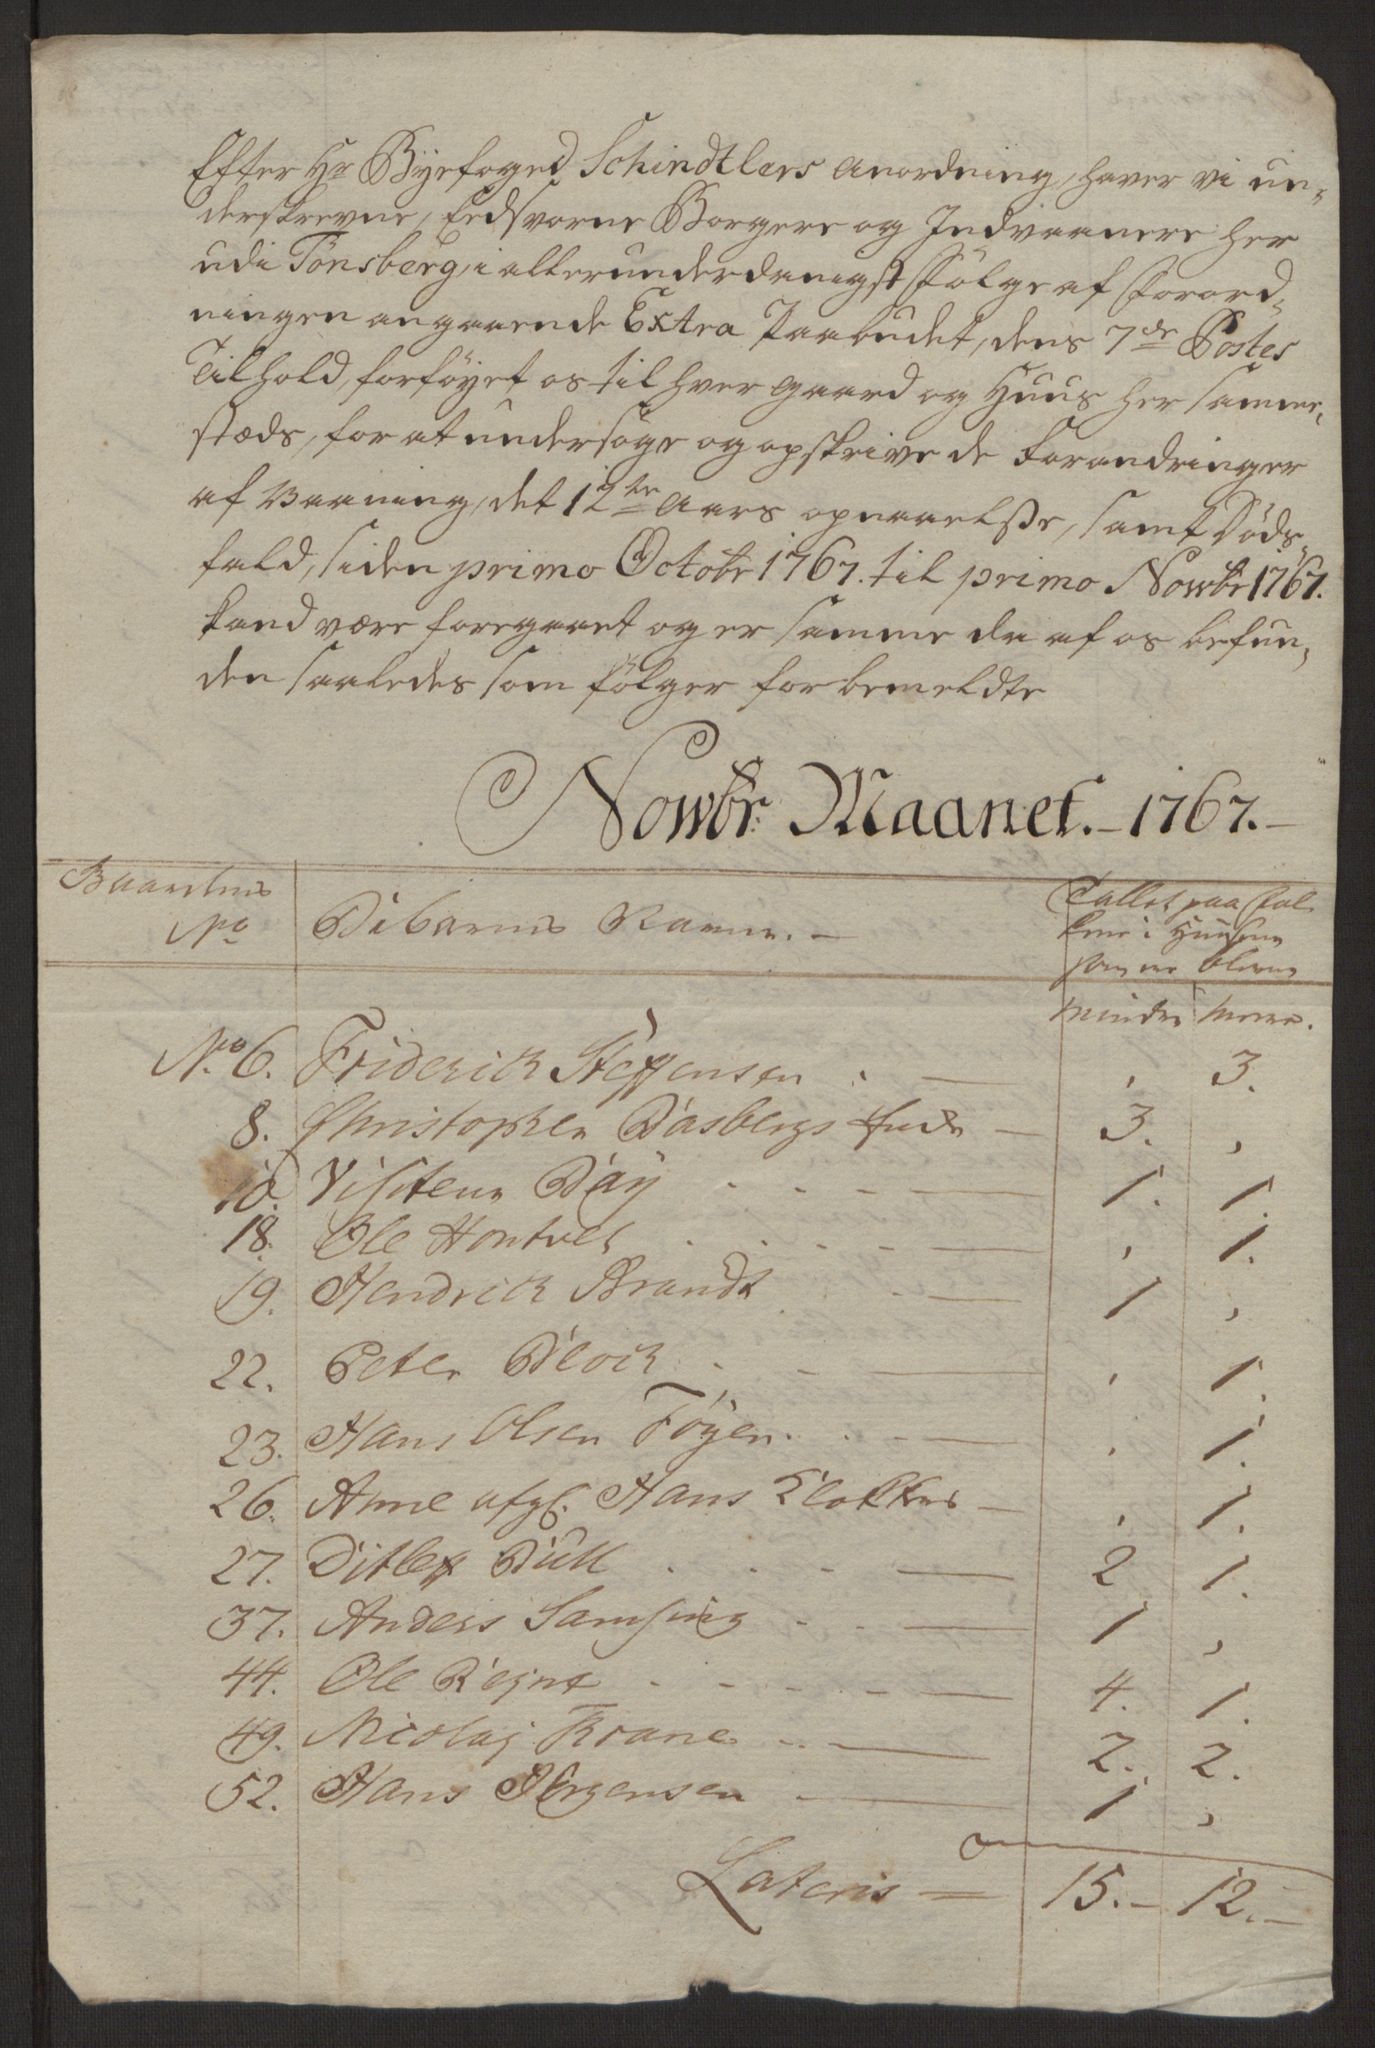 Efter Hr Byefoged Schindtlers Anordning, haver vi un-
derskrevne, Eedsvorne Borgere og Indvaanere her
udi Tønsberg, i allerunderdanigst følge af Forord-
ningen angaaende Extra Paabudet, dens 7de Postes
Tilhold, forføyet os til hver Gaard og Huus her samme-
stæds, for at undersøge og opskrive de Forandringer
af Vaaning, det 12te Aars opnaaelsse, samt Døds-
fald, siden primo Octobr 1767. til primo Novbr 1767.
kand være foregaaet og er samme da af os befun-
den saaledes som følger for bemeldte
Novbr: Maanet. - 1767. -
Gaardens No
Beboernis Nafne. -
Tallet paa Fol-
kene i Huusene
som er bleven
mindre meere.
No. 6. Friderich Steffensen . — , 3.
8. Christopher Dasbergs Enke — 3. ,
10. Visiteur Bay . . . — 1. 1.
18. Ole Hontvet . . . — , 1.
19. Hendrich Brandt — 1 ,
22. Peter Bloch . . — , 1.
23. Hans Olsen Føyen . . — , 1.
26. Anne afg. Hans Klokkers — , 1.
27. Ditlef Bull . . . — 2 1.
37. Anders Samsing . . — 1 ,
44. Ole Reynt . . . . — 4. 1.
49. Nicolaj Krane . . — 2. 2.
52. Hans Jørgensen — 1 ,
Lateris = 15. - 12. -